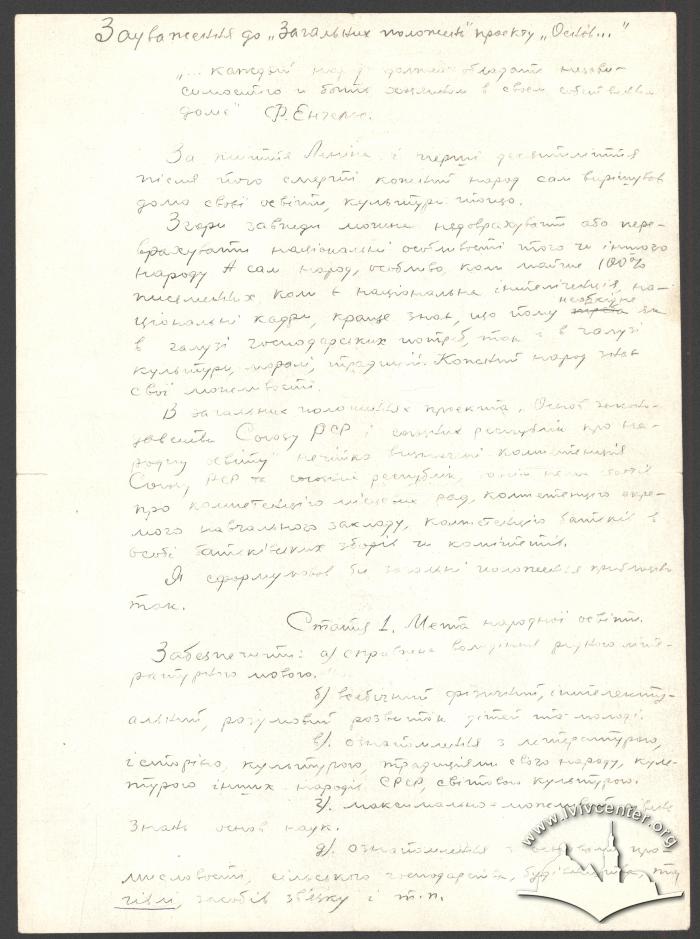 Зауваження до „Загальних положень" проекту „Основ..."
„... каждый народ должен обладать незави-
симостью и быть хозяином в своем собственном
доме" Ф. Енгельс.
За життя Леніна і перші десятиліття
після його смерті кожний народ сам вирішував
долю своєї освіти, культури тощо.
Згори завжди можна недоврахувати або пере-
врахувати національні особливості того чи іншого
народу. А сам народ, особливо, коли майже 100%
письменних, коли є національна інтелігенція, на-
ціональні кадри, краще знає, що йому необхідне як
в галузі господарських потреб, так і в галузі
культури, моралі, традицій. Кожний народ знає
свої можливості.
В загальних положеннях проекта „Основ законо-
давства Союзу РСР і союзних республік про на-
родну освіту" нечітко визначені компетенція
Союзу РСР та союзних республік, зовсім нема
про компетенцію місцевих рад, компетенцію окре-
мого навчального закладу, компетенцію батьків в
особі батьківських зборів чи комітетів.
Я сформулював би загальні положення приблизно
так.
Стаття 1. Мета народної освіти.
Забезпечити: а) справжнє володіння рідною літе-
ратурною мовою.
б) всебічний фізичний, інтелекту-
альний, розумовий розвиток дітей та молоді.
в). ознайомлення з літературою,
історією, культурою, традиціями свого народу, куль-
турою інших народів СРСР, світовою культурою.
г). максимально-можливий рівень
знань основ наук.
д). ознайомлення з основами про-
мисловості, сільського господарства, будівництва, тор-
гівлі, засобів зв'язку і т.п.
www.lvivcenter.org